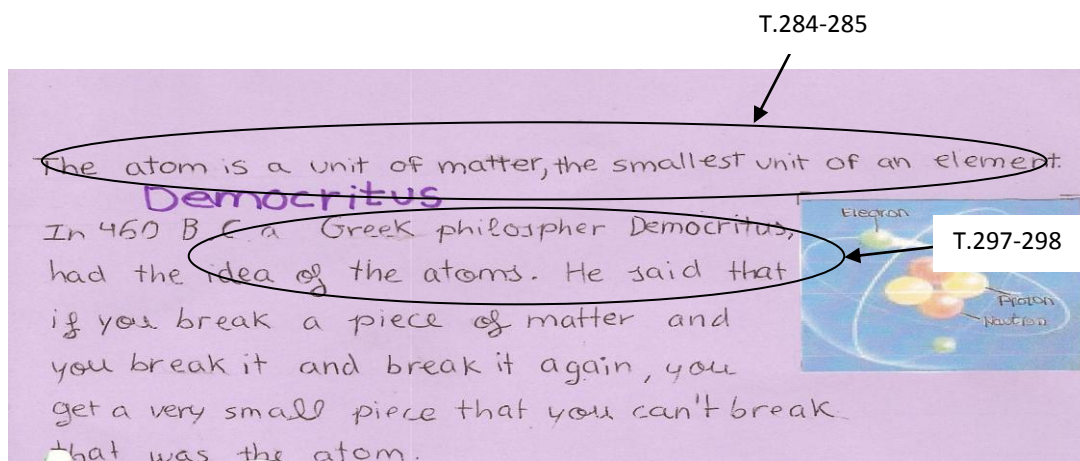 T.284-285
The atom is a unit of matter, the smallest unit of an element.
Democritus
In 460 B.C. a Greek philospher Democritus,
had the idea of the atoms. He said that
if you break a piece of matter and
you break it and break it again, you
get a very small piece that you can't break
that was the atom.
Electron
T.297-298
Proton
Neutron